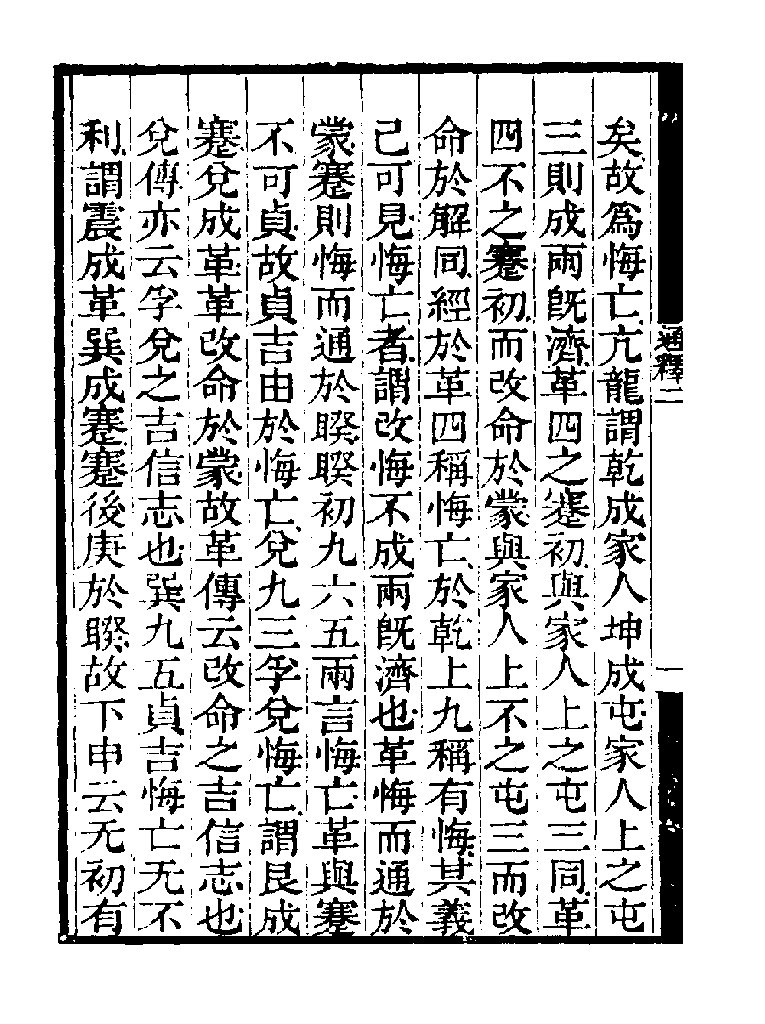 通釋二
一
矣故爲悔亡亢龍謂乾成家人坤成屯家人上之屯
三則成兩旣濟革四之蹇初與家人上之屯三同革
四不之蹇初而改命於蒙與家人上不之屯三而改
命於解同經於革四稱悔亡於乾上九稱有悔其義
己可見悔亡者謂改悔不成兩旣濟也革悔而通於
蒙蹇則悔而通於睽睽初九六五兩言悔亡革與蹇
不可貞故貞吉由於悔亡兌九三孚兌悔亡謂艮成
蹇兌成革革改命於蒙故革傳云改命之吉信志也
兌傳亦云孚兌之吉信志也巽九五貞吉悔亡无不
利謂震成革巽成蹇蹇後庚於睽故下申云无初有